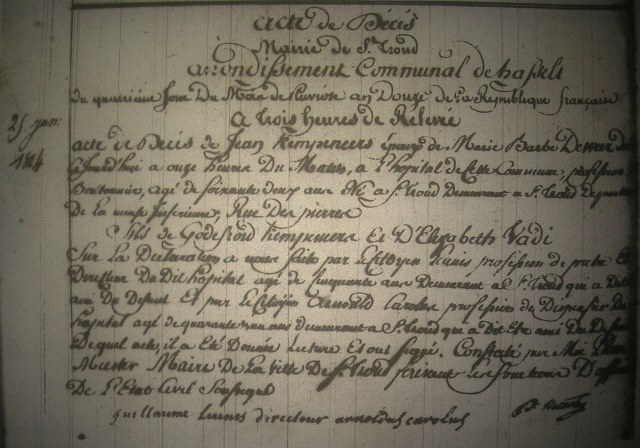 Acte de Décès
Mairie de St. Trond
Arrondissement Communal de hasselt
du quatrième Jour Du Mois de Pluviose an Douze de La République française
A trois heures de Relevée
25 janr.
1804
acte de Décès de Jean Kempeneers époux de Marie Barbe
a onze heures Du Matin, a l'hopital de cette Commune, profession
Boutonnier, agé de soixante deux ans Né a St. Trond Demeurant a St. Trond Departemt
De La meuse Inferieure, Rue Des pierres
fils de Godefroid Kempeneers Et D'Elisabeth Vadi
Sur La Declaration a nous faite par Le Citoyen profession de pretre Et
Directeur Du Dit hopital agé de cinquante ans Demeurant a St. Trond qui a Dit
ami Du Defunt Et par Le Citoyen Arnould Carolus profession de
hopital agé de quarante ans demeurant a St. Trond qui a Dit Etre ami Du Defunt
Dequel acte, il a Eté Donnée Lecture Et ont signé. Constaté par Moi
Maire De La Ville De St. Trond faisant Les fonctions D'officier
De L'Etat Civil Soussigné
guillaume directeur arnoldus carolus